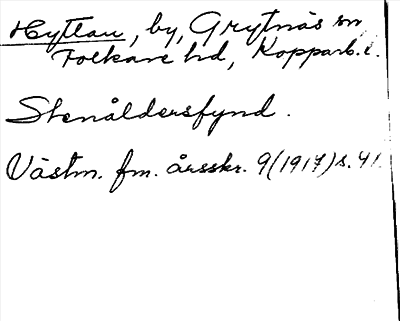 Hyttan, by, Grytnäs sn
Folkare hd, Kopparb. l.
Stenåldersfynd.
Västm. fm. årsskr. 9(1917) s. 41.